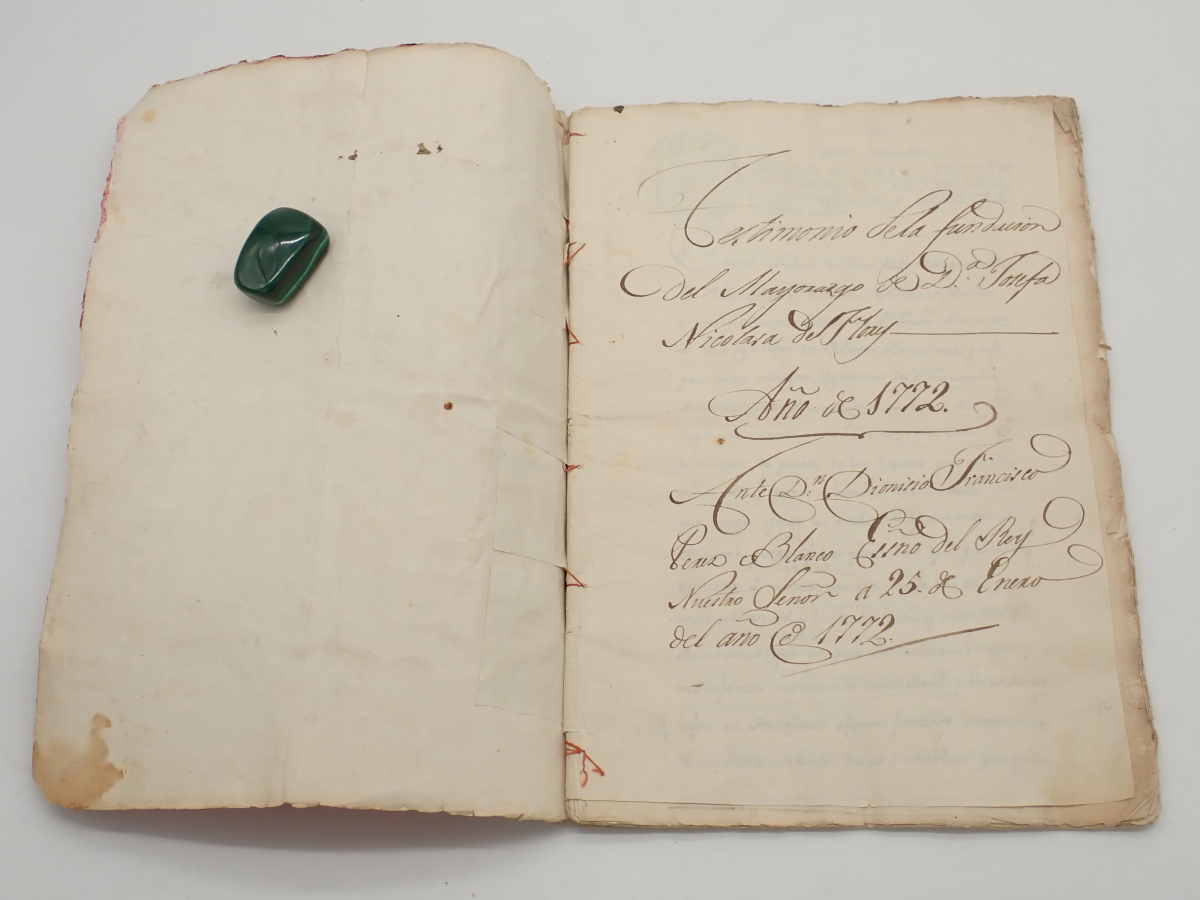 Testimonio dela fundacion
del Mayorazgo de D.ª Josefa
Nicolasa de Flores
Año de 1772.
Ante D.n Dionisio Francisco
Perez Blanco Essno del Rey
Nuestro Señor a 25. de Enero
del año de 1772.